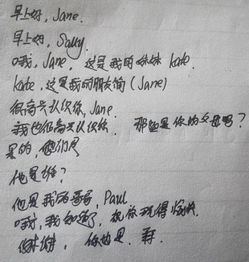 早上好, Jane.
早上好, Sally.
哦, Jane, 这是我的妹妹 kate.
kate, 这是我的朋友简 (Jane)
很高兴认识你, Jane.
我也很高兴认识你. 那些是你的父母吗?
是的, 他们是
他是谁?
他是我的哥哥, Paul
哦, 我知道了, 祝你玩得愉快.
谢谢, 你也是. 再